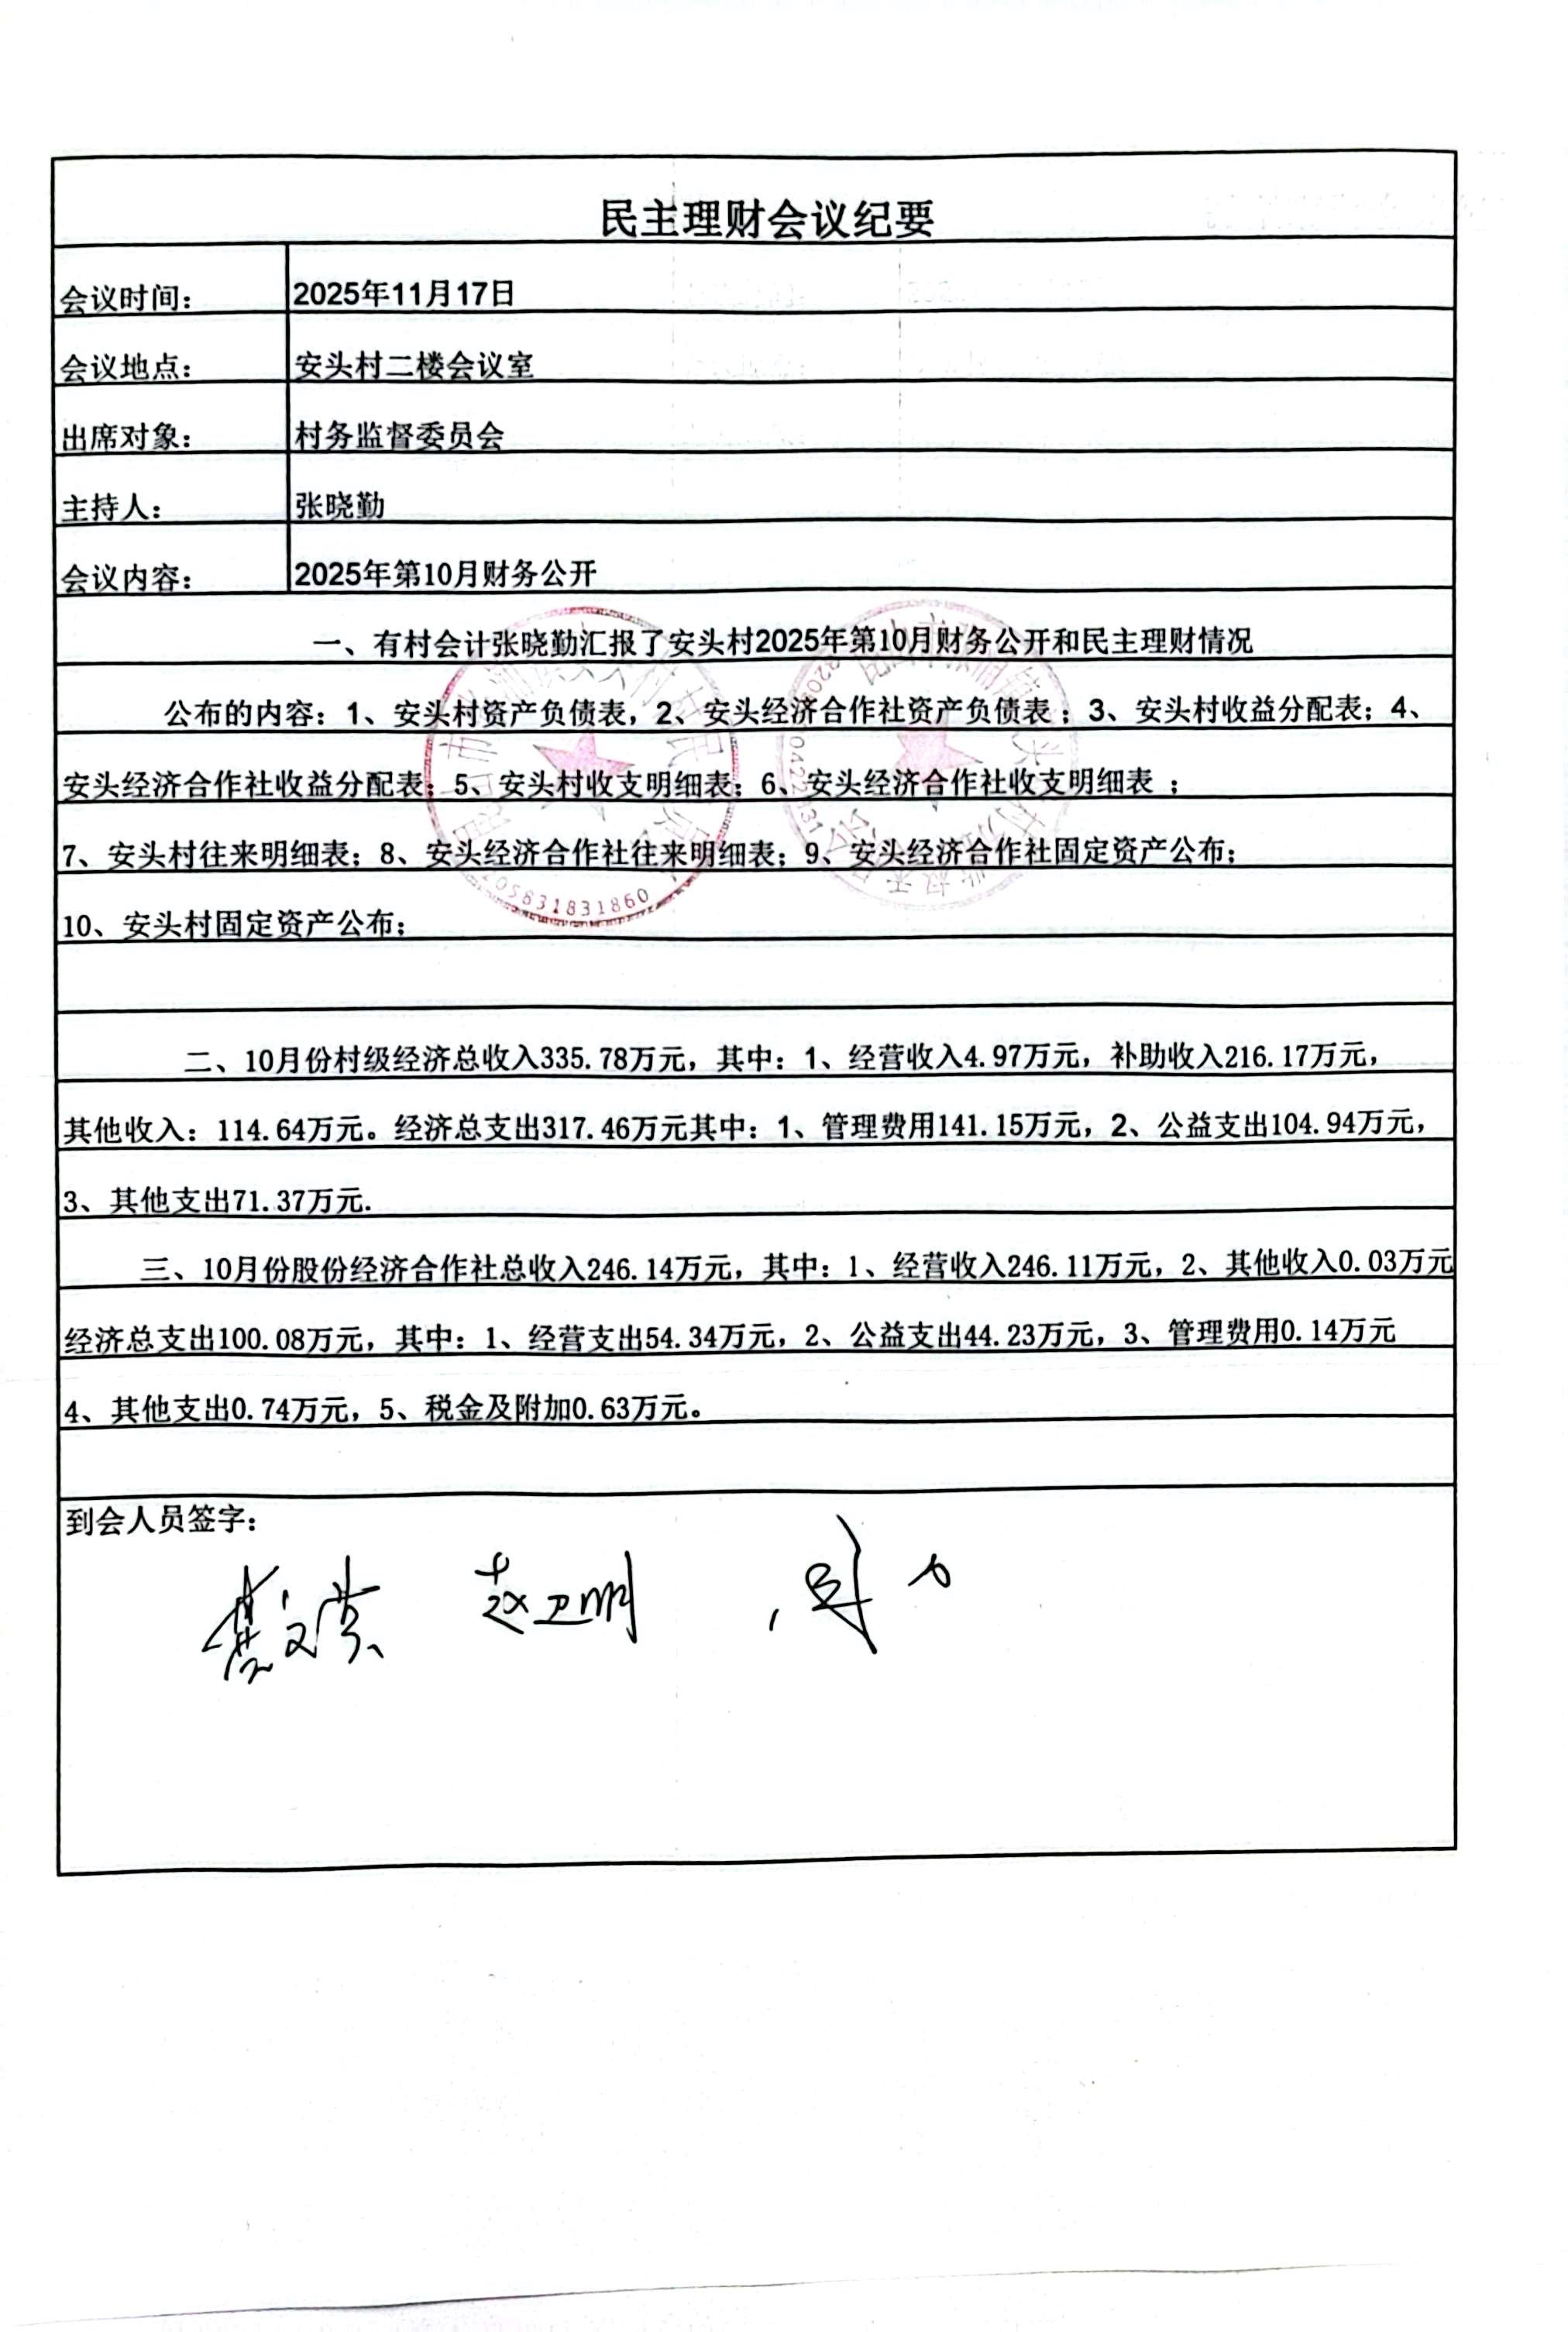 民主理财会议纪要
会议时间： 2025年11月17日
会议地点： 安头村二楼会议室
出席对象： 村务监督委员会
主持人： 张晓勤
会议内容： 2025年第10月财务公开
一、有村会计张晓勤汇报了安头村2025年第10月财务公开和民主理财情况
公布的内容：1、安头村资产负债表，2、安头经济合作社资产负债表；3、安头村收益分配表；4、
安头经济合作社收益分配表；5、安头村收支明细表；6、安头经济合作社收支明细表 ；
7、安头村往来明细表；8、安头经济合作社往来明细表；9、安头经济合作社固定资产公布；
10、安头村固定资产公布；
二、10月份村级经济总收入335.78万元，其中：1、经营收入4.97万元，补助收入216.17万元，
其他收入：114.64万元。经济总支出317.46万元其中：1、管理费用141.15万元，2、公益支出104.94万元，
3、其他支出71.37万元.
三、10月份股份经济合作社总收入246.14万元，其中：1、经营收入246.11万元，2、其他收入0.03万元
经济总支出100.08万元，其中：1、经营支出54.34万元，2、公益支出44.23万元，3、管理费用0.14万元
4、其他支出0.74万元，5、税金及附加0.63万元。
到会人员签字：
赵卫明